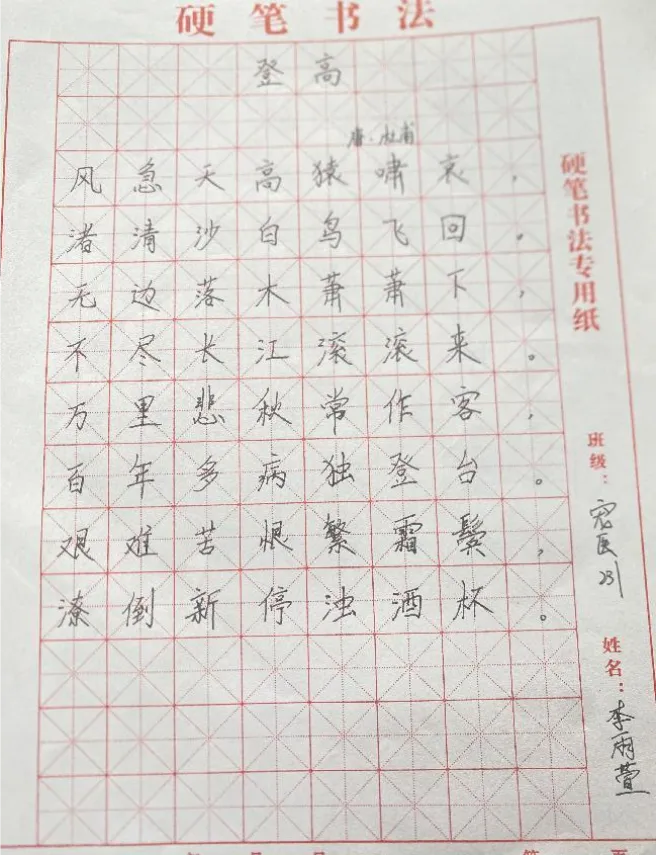 硬笔书法
登高
唐·杜甫
风急天高猿啸哀，
渚清沙白鸟飞回。
无边落木萧萧下，
不尽长江滚滚来。
万里悲秋常作客，
百年多病独登台。
艰难苦恨繁霜鬓，
潦倒新停浊酒杯。
硬笔书法专用纸
班级：宠医231
姓名：李雨萱